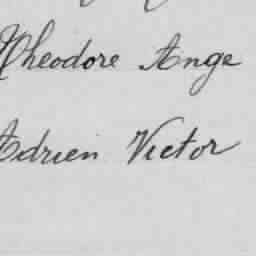 Théodore Ange
Adrien Victor